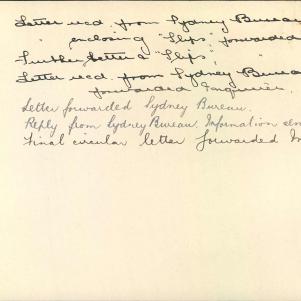 Letter recd. from Sydney Bureau
" enclosing "Slips" forwarded
Further letter & "Slips",
Letter recd. from Sydney Bureau
forwarded Inquirer.
Letter forwarded Sydney Bureau.
Reply from Sydney Bureau. Information sen
Final circular letter forwarded In